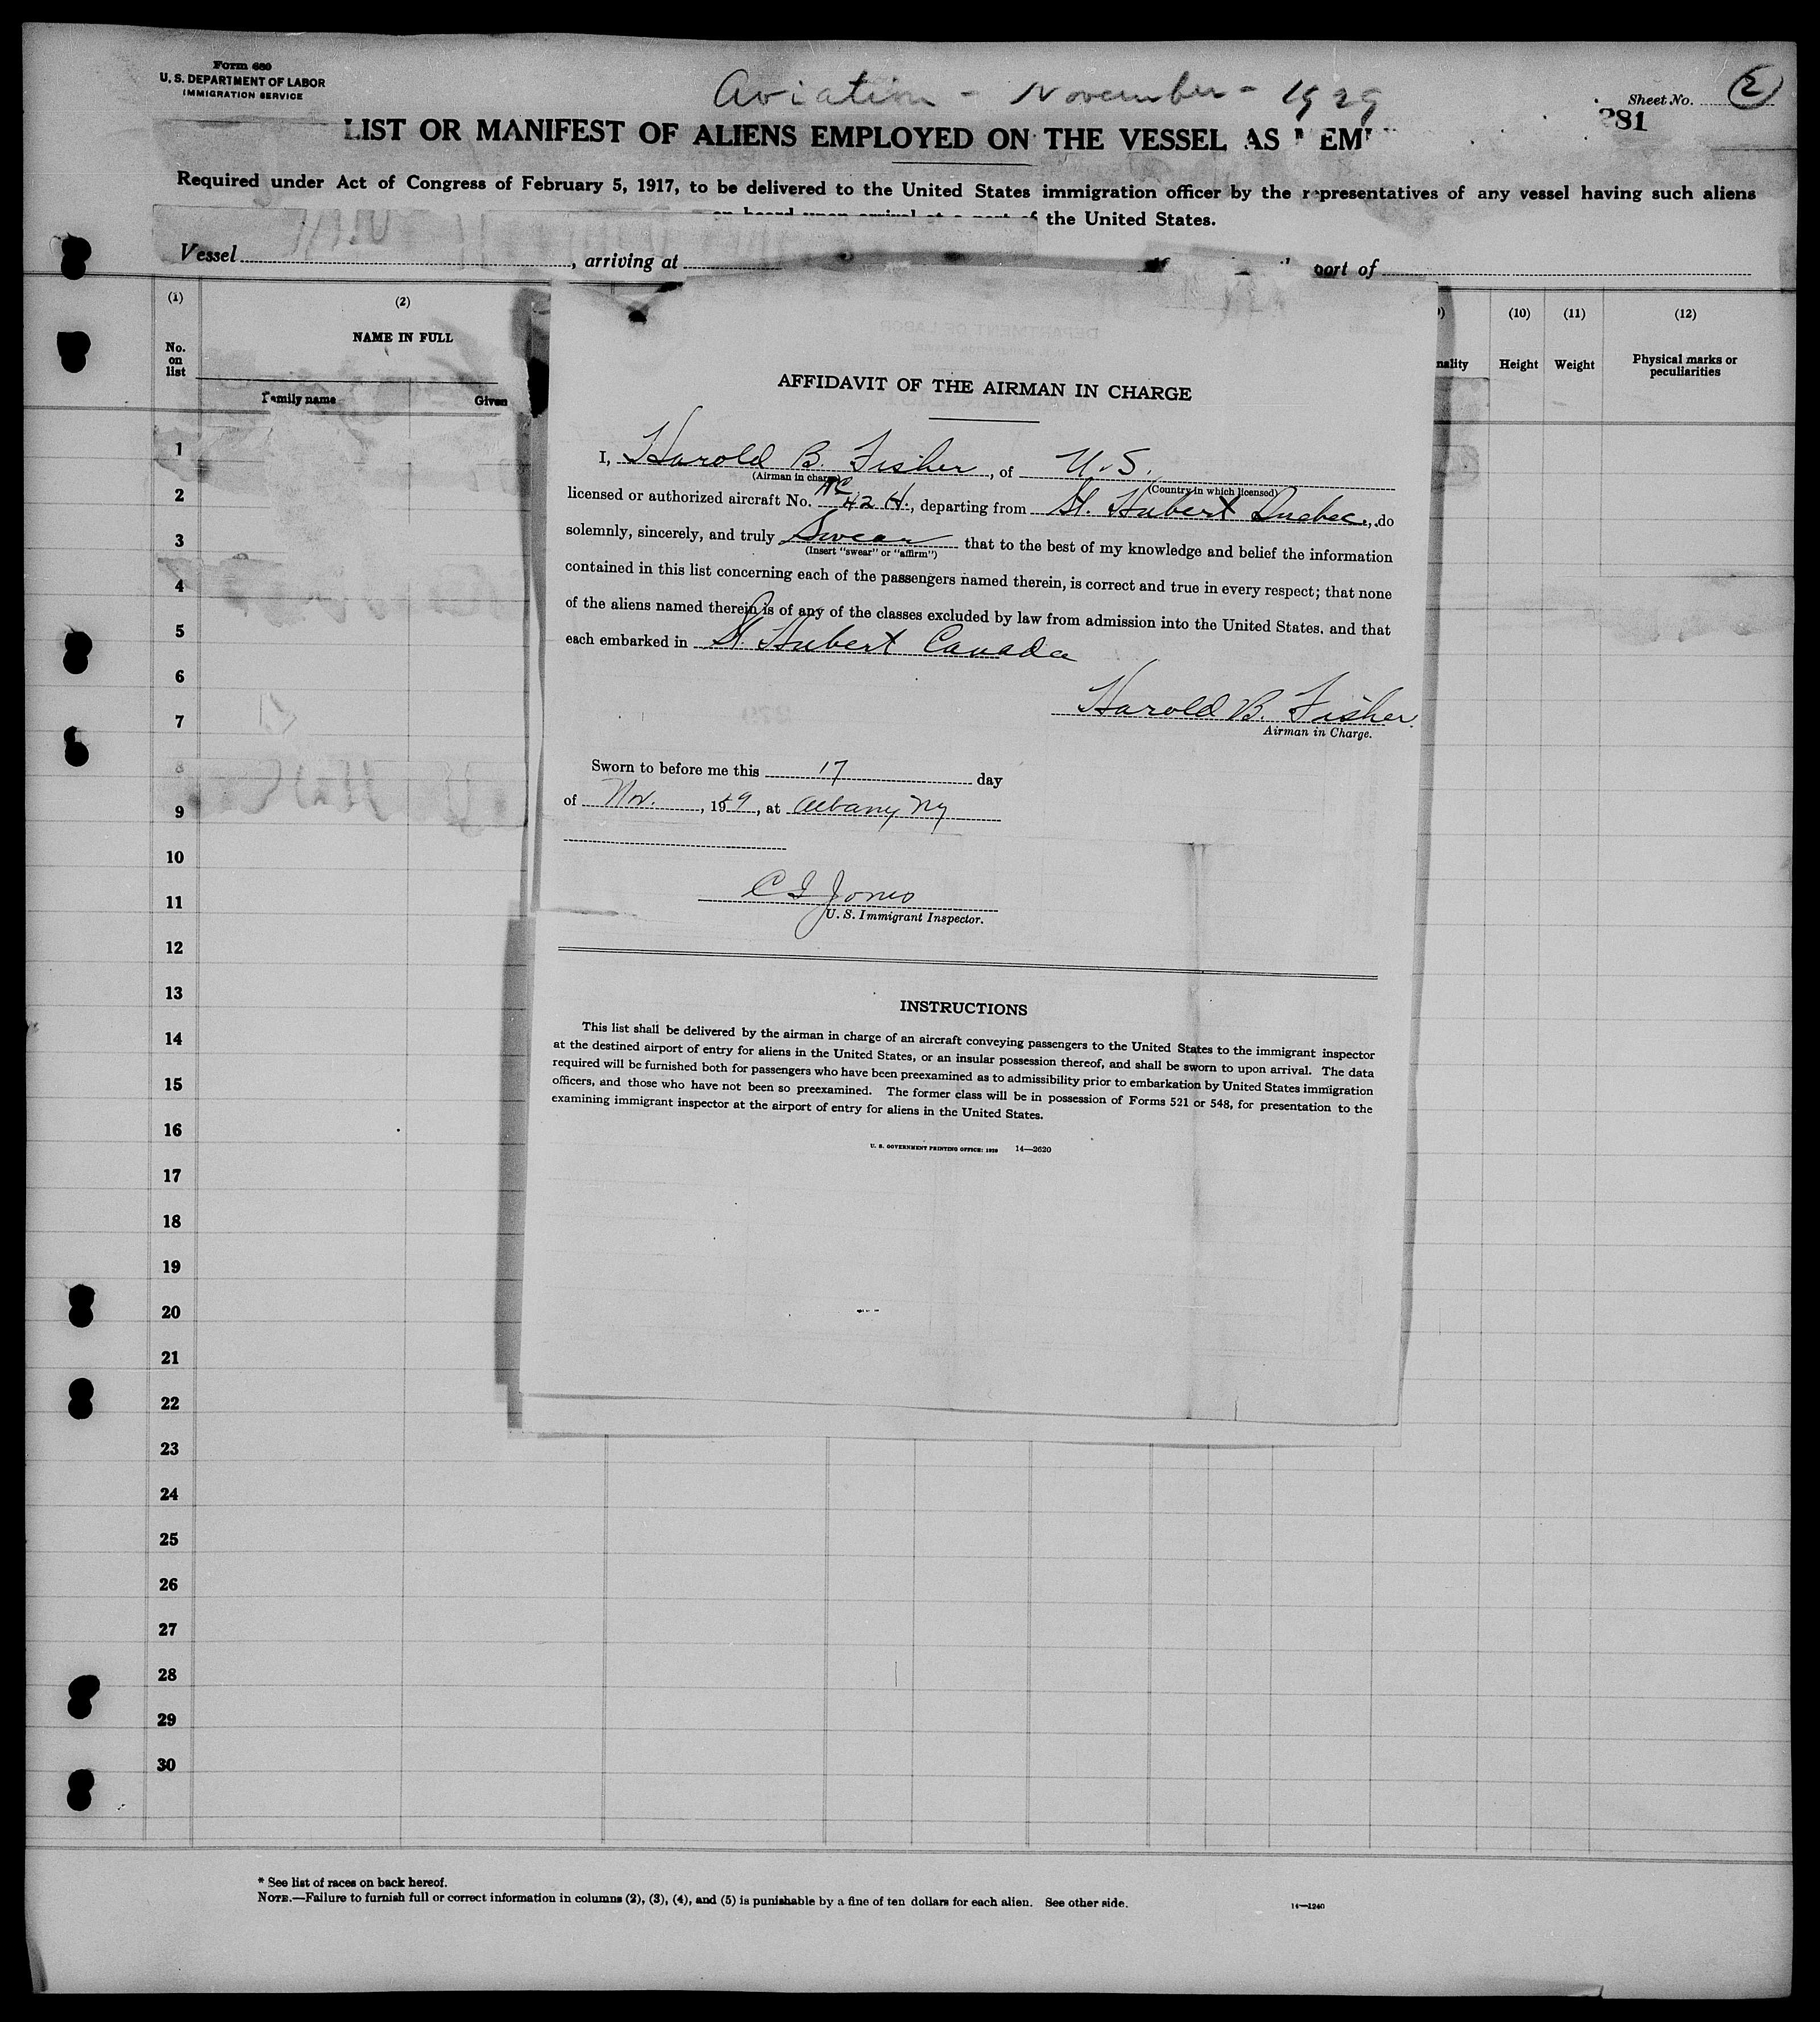 Form 689
U. S. DEPARTMENT OF LABOR
IMMIGRATION SERVICE
Aviation - November - 1929
Sheet No. 2
281
LIST OR MANIFEST OF ALIENS EMPLOYED ON THE VESSEL AS
Required under Act of Congress of February 5, 1917, to be delivered to the United States immigration officer by the representatives of any vessel having such aliens
on board upon arrival at a port of the United States.
Vessel , arriving at port of
(1) (2) (10) (11) (12)
NAME IN FULL
No. on list
Family name Given
Height Weight Physical marks or peculiarities
AFFIDAVIT OF THE AIRMAN IN CHARGE
I, Harold B. Fisher, of U. S.
(Airman in charge) (Country in which licensed)
licensed or authorized aircraft No. NC 42 H., departing from St. Hubert Quebec, do
solemnly, sincerely, and truly Swear that to the best of my knowledge and belief the information
(Insert "swear" or "affirm")
contained in this list concerning each of the passengers named therein, is correct and true in every respect; that none
of the aliens named therein is of any of the classes excluded by law from admission into the United States, and that
each embarked in St. Hubert Canada
Harold B. Fisher
Airman in Charge.
Sworn to before me this 17 day
of Nov., 1929, at Albany NY
C I Jones
U. S. Immigrant Inspector.
INSTRUCTIONS
This list shall be delivered by the airman in charge of an aircraft conveying passengers to the United States to the immigrant inspector
at the destined airport of entry for aliens in the United States, or an insular possession thereof, and shall be sworn to upon arrival. The data
required will be furnished both for passengers who have been preexamined as to admissibility prior to embarkation by United States immigration
officers, and those who have not been so preexamined. The former class will be in possession of Forms 521 or 548, for presentation to the
examining immigrant inspector at the airport of entry for aliens in the United States.
U. S. GOVERNMENT PRINTING OFFICE: 1929 14—2620
1
2
3
4
5
6
7
8
9
10
11
12
13
14
15
16
17
18
19
20
21
22
23
24
25
26
27
28
29
30
* See list of races on back hereof.
NOTE.—Failure to furnish full or correct information in columns (2), (3), (4), and (5) is punishable by a fine of ten dollars for each alien. See other side.
14—1240